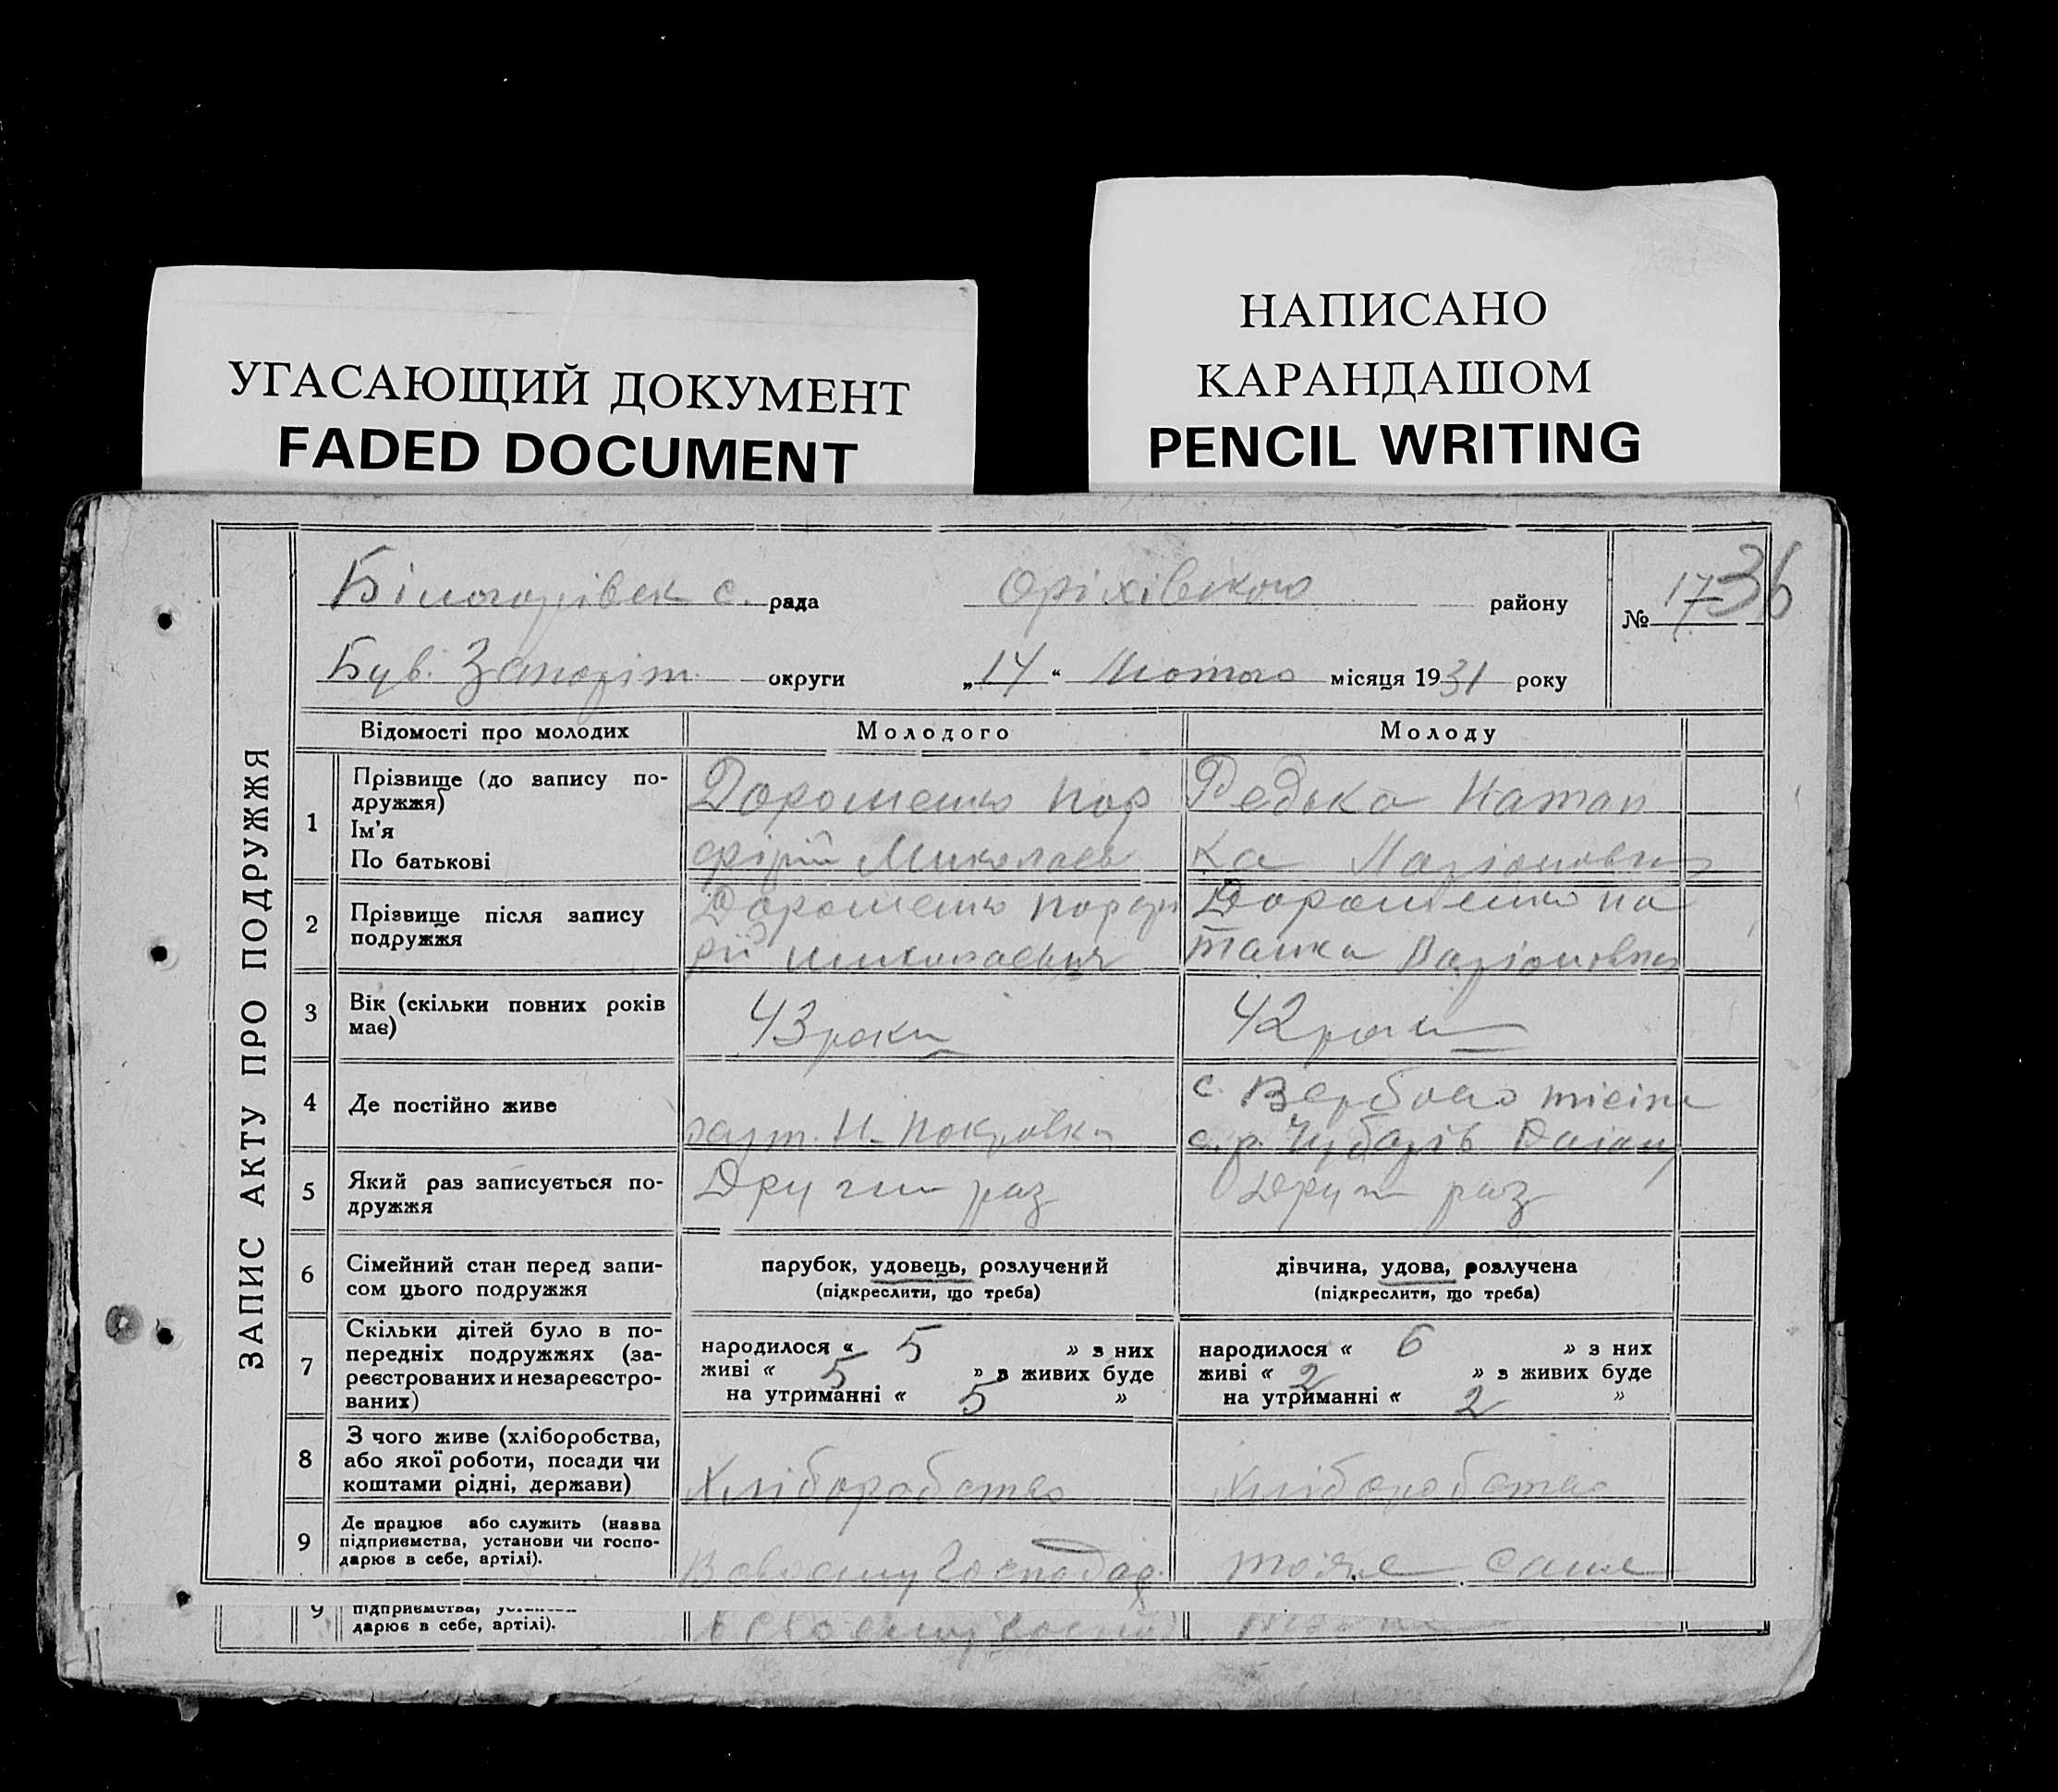 УГАСАЮЩИЙ ДОКУМЕНТ
FADED DOCUMENT
НАПИСАНО
КАРАНДАШОМ
PENCIL WRITING
ЗАПИС АКТУ ПРО ПОДРУЖЖЯ
Білогорівск с. рада Оріхівського району № 17 36
Був. Запоріж. округи „14“ Лютого місяця 1931 року
Відомості про молодих Молодого Молоду
1 Прізвище (до запису подружжя) Ім'я По батькові
Дорошенко Пор
фірій Миколаев
Редька Натал
ка Ларіоновна
2 Прізвище після запису подружжя
Дорошенко Порфі
рій Миколаевич
Дорошенко На
талка Ларіоновна
3 Вік (скільки повних років має) 43 роки 42 роки
4 Де постійно живе
хут. Н-Покровка
с. Вербово
с.р. Чубарів
5 Який раз записується подружжя Други раз Други раз
6 Сімейний стан перед записом цього подружжя
парубок, удовець, розлучений
(підкреслити, що треба)
дівчина, удова, розлучена
(підкреслити, що треба)
7 Скільки дітей було в попередніх подружжях (зареєстрованих и незареєстрованих)
народилося « 5 » з них
живі « 5 » з живих буде
на утриманні « 5 »
народилося « 6 » з них
живі « 2 » з живих буде
на утриманні « 2 »
8 З чого живе (хліборобства, або якої роботи, посади чи коштами рідні, держави) Хліборобство Хліборобства
9 Де працює або служить (назва підприємства, установи чи господарює в себе, артілі). В своєму Господар. тоже саме
9 підприємства,
дарює в себе, артілі). в своєму